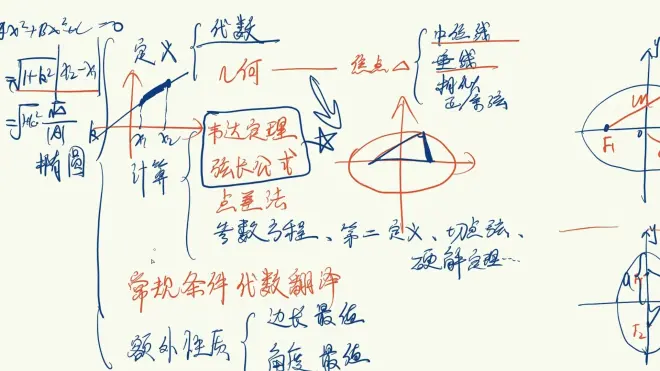 Ax²+Bx+C=0
=√1+k² |x₂-x₁|
=√1+k² √Δ/|A|
椭圆
定义
代数
几何 —— 焦点△
中位线
垂线
相似
正/余弦
x₁ x₂
计算
韦达定理
弦长公式
点差法
参数方程、第二定义、切点弦、
硬解定理……
常规条件代数翻译
额外性质
边长最值
角度最值
y
F₁
y
a
F₂